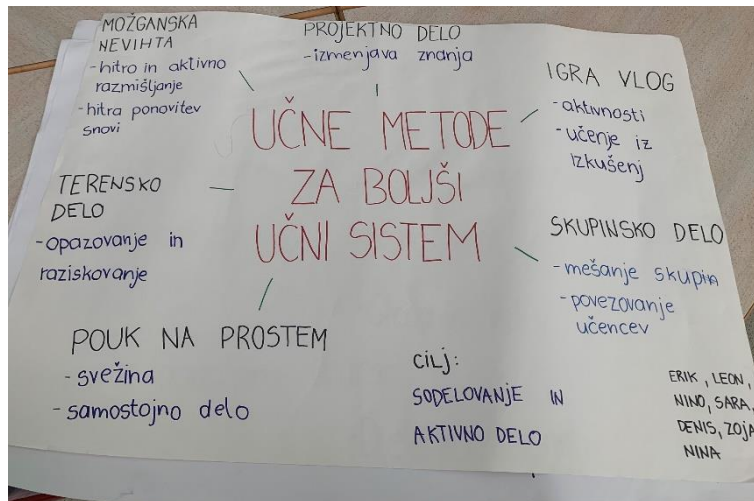 MOŽGANSKA
NEVIHTA
- hitro in aktivno
razmišljanje
- hitra ponovitev
snovi
PROJEKTNO DELO
- izmenjava znanja
IGRA VLOG
- aktivnosti
- učenje iz
izkušenj
UČNE METODE
ZA BOLJŠI
UČNI SISTEM
TERENSKO
DELO
- opazovanje in
raziskovanje
SKUPINSKO DELO
- mešanje skupin
- povezovanje
učencev
POUK NA PROSTEM
- svežina
- samostojno delo
CILJ:
SODELOVANJE IN
AKTIVNO DELO
ERIK, LEON,
NINO, SARA,
DENIS, ZOJA
NINA